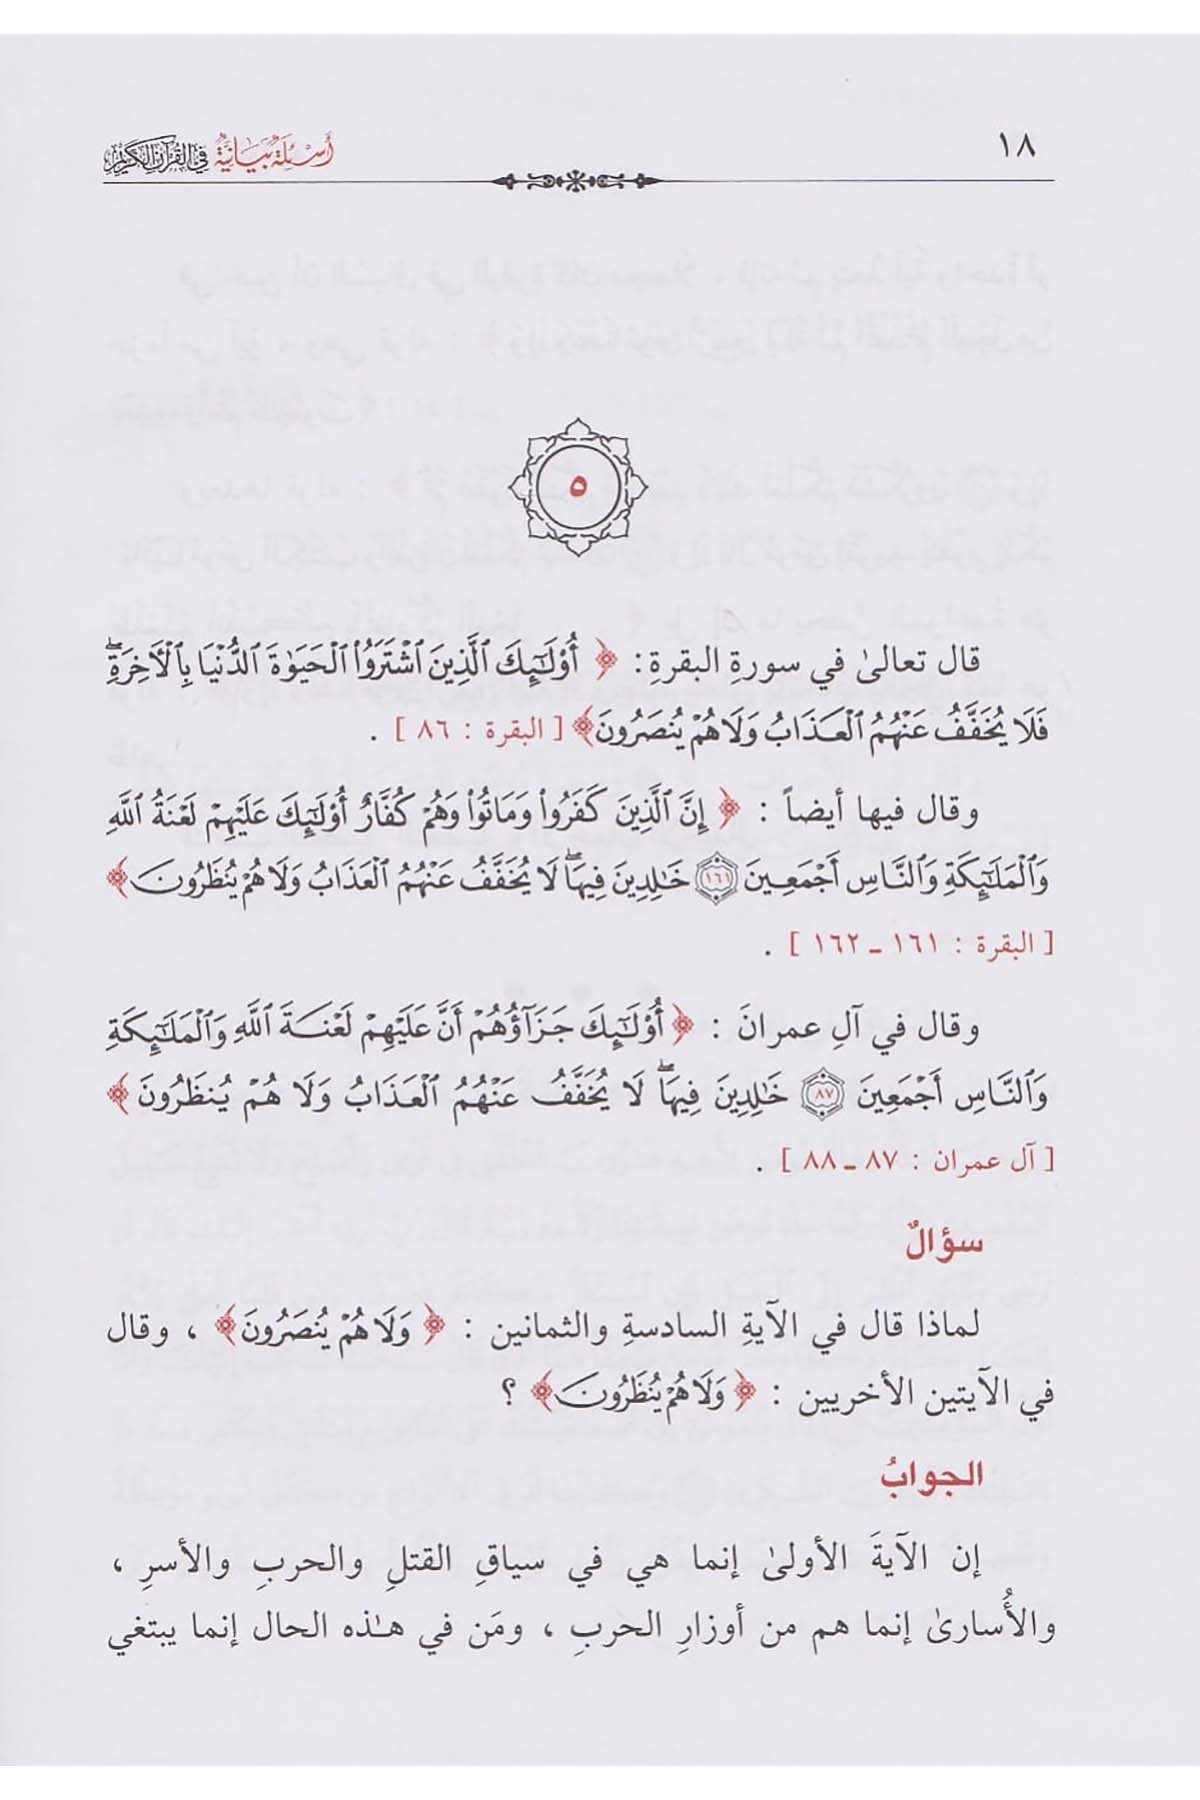 ١٨
أسئلة بيانية في القرآن الكريم
٥
قال تعالىٰ في سورةِ البقرةِ: ﴿ أُوْلَـٰٓئِكَ ٱلَّذِينَ ٱشْتَرَوُاْ ٱلْحَيَوٰةَ ٱلدُّنْيَا بِٱلْآخِرَةِۖ
فَلَا يُخَفَّفُ عَنْهُمُ ٱلْعَذَابُ وَلَا هُمْ يُنصَرُونَ﴾ [ البقرة : ٨٦ ] .
وقال فيها أيضاً : ﴿ إِنَّ ٱلَّذِينَ كَفَرُواْ وَمَاتُواْ وَهُمْ كُفَّارٌ أُوْلَـٰٓئِكَ عَلَيْهِمْ لَعْنَةُ ٱللَّهِ
وَٱلْمَلَـٰٓئِكَةِ وَٱلنَّاسِ أَجْمَعِينَ ١٦١ خَـٰلِدِينَ فِيهَاۖ لَا يُخَفَّفُ عَنْهُمُ ٱلْعَذَابُ وَلَا هُمْ يُنظَرُونَ﴾
[ البقرة : ١٦١ ـ ١٦٢ ] .
وقال في آلِ عمرانَ : ﴿ أُوْلَـٰٓئِكَ جَزَآؤُهُمْ أَنَّ عَلَيْهِمْ لَعْنَـةَ ٱللَّهِ وَٱلْمَلَـٰٓئِكَةِ
وَٱلنَّاسِ أَجْمَعِينَ ٨٧ خَـٰلِدِينَ فِيهَاۖ لَا يُخَفَّفُ عَنْهُمُ ٱلْعَذَابُ وَلَا هُمْ يُنظَرُونَ ﴾
[ آل عمران : ٨٧ ـ ٨٨ ] .
سؤالٌ
لماذا قال في الآيةِ السادسةِ والثمانين : ﴿ وَلَا هُمْ يُنصَرُونَ﴾ ، وقال
في الآيتين الأخريين : ﴿ وَلَا هُمْ يُنظَرُونَ﴾ ؟
الجوابُ
إن الآيةَ الأولىٰ إنما هي في سياقِ القتلِ والحربِ والأسرِ ،
والأُسارىٰ إنما هم من أوزارِ الحربِ ، ومَن في هـٰذه الحال إنما يبتغي